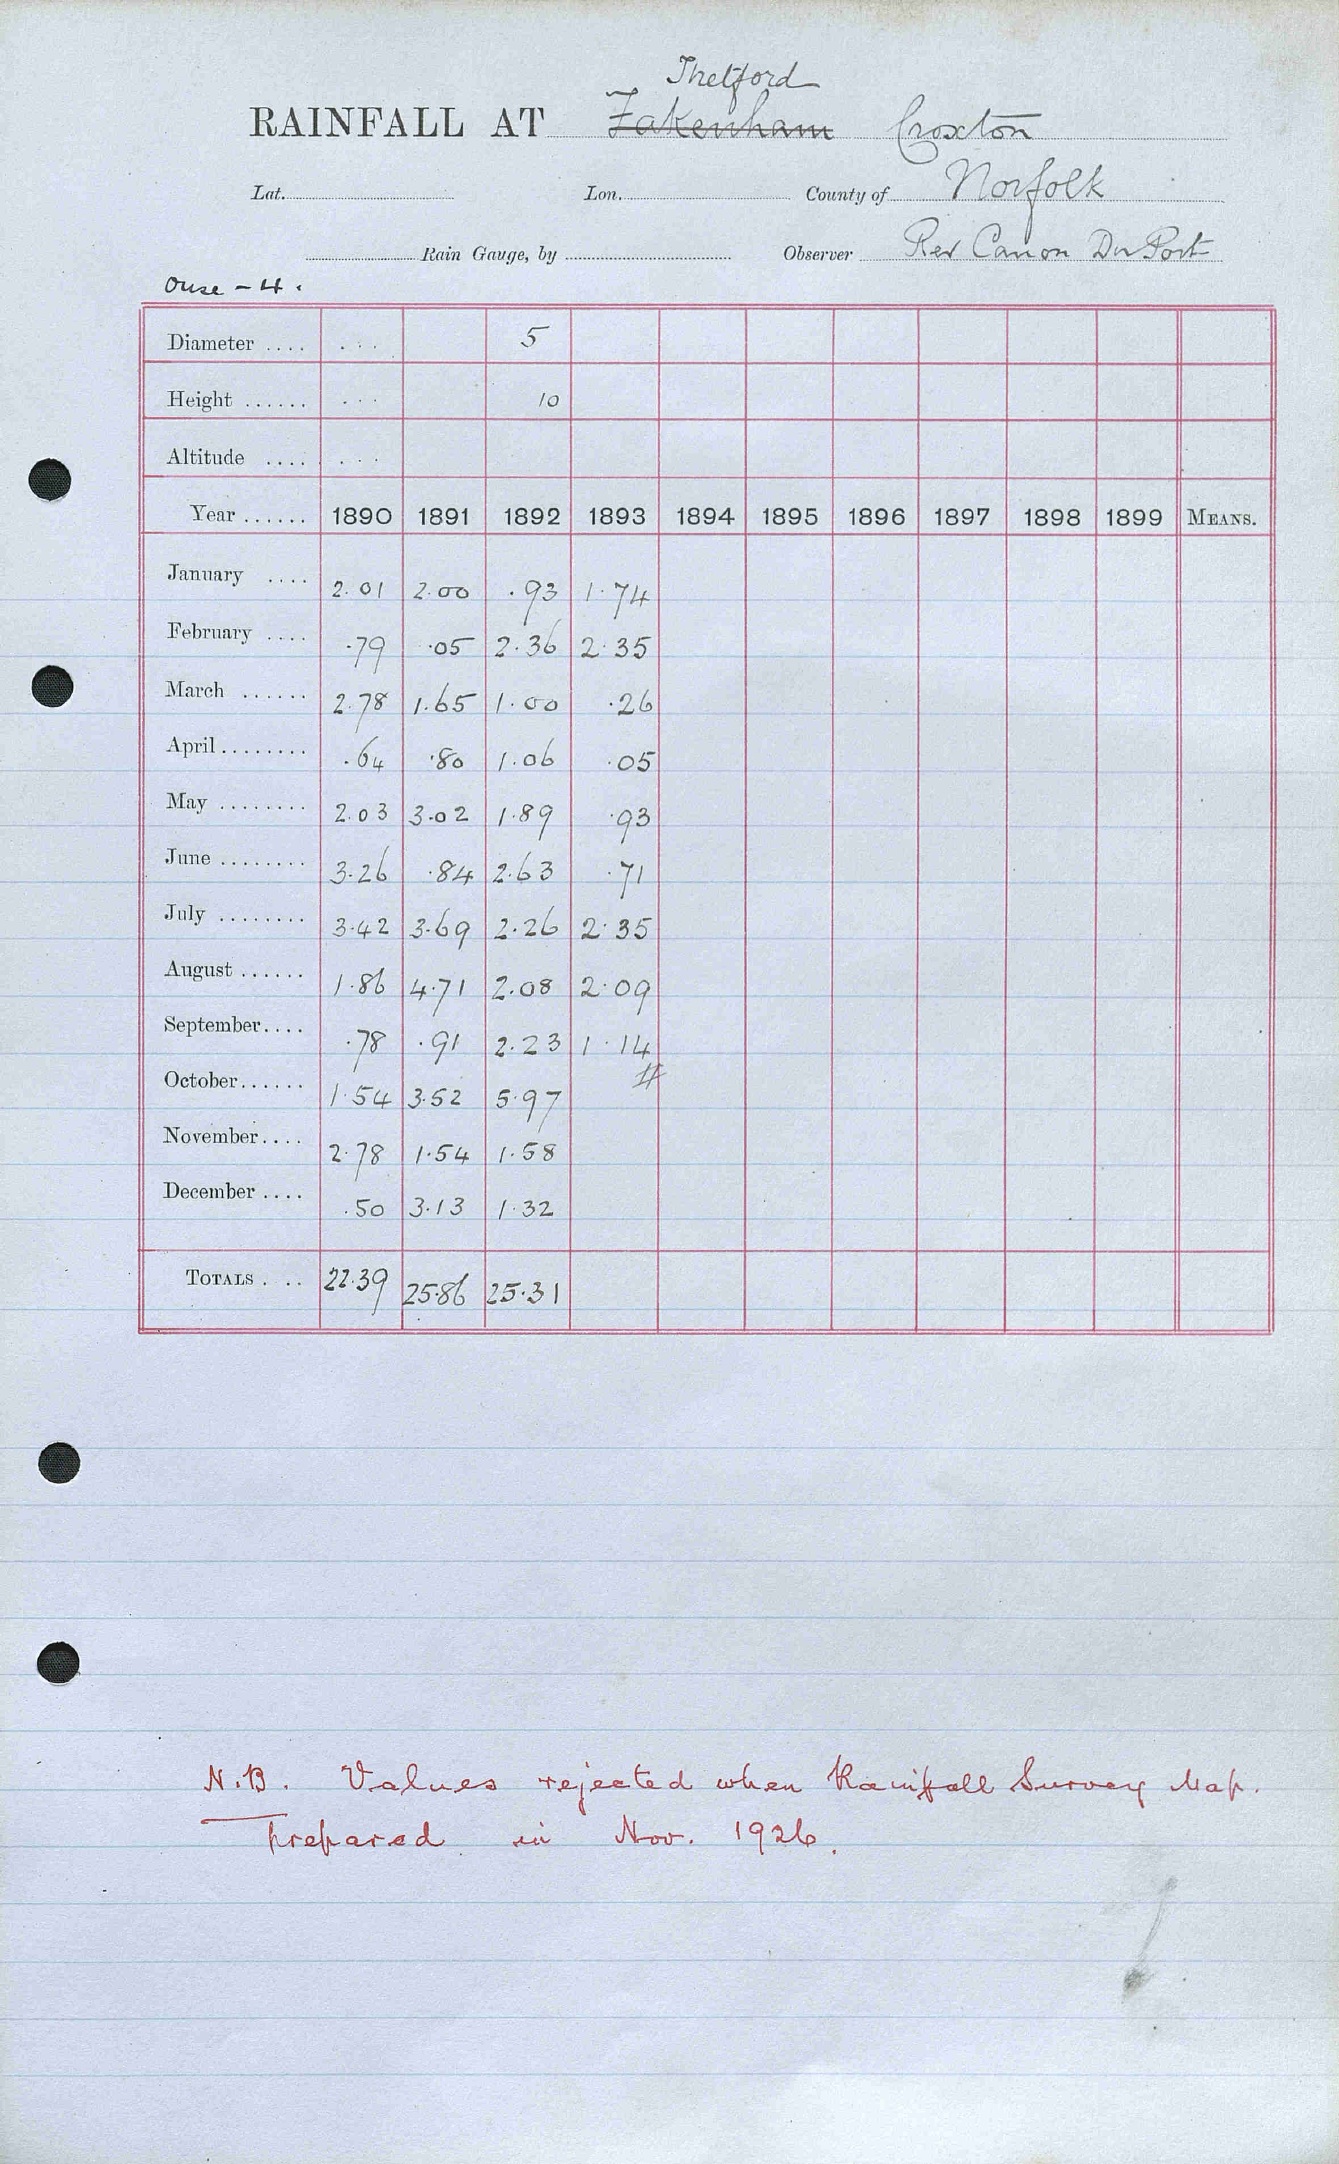 Thetford
RAINFALL AT Fakenham Croxton
Lat. Lon. County of Norfolk
Rain Gauge, by Observer Rev Canon Du Port
Ouse - 4.
Diameter .... 5
Height ...... 10
Altitude ....
Year ...... 1890 1891 1892 1893 1894 1895 1896 1897 1898 1899 MEANS.
January .... 2.01 2.00 .93 1.74
February .... .79 .05 2.36 2.35
March ...... 2.78 1.65 1.00 .26
April ........ .64 .80 1.06 .05
May ........ 2.03 3.02 1.89 .93
June ........ 3.26 .84 2.63 .71
July ........ 3.42 3.69 2.26 2.35
August ...... 1.86 4.71 2.08 2.09
September.... .78 .91 2.23 1.14
October...... 1.54 3.52 5.97 #
November.... 2.78 1.54 1.58
December .... .50 3.13 1.32
TOTALS . .. 22.39 25.86 25.31
N.B. Values rejected when Rainfall Survey Map.
prepared in Nov. 1926.